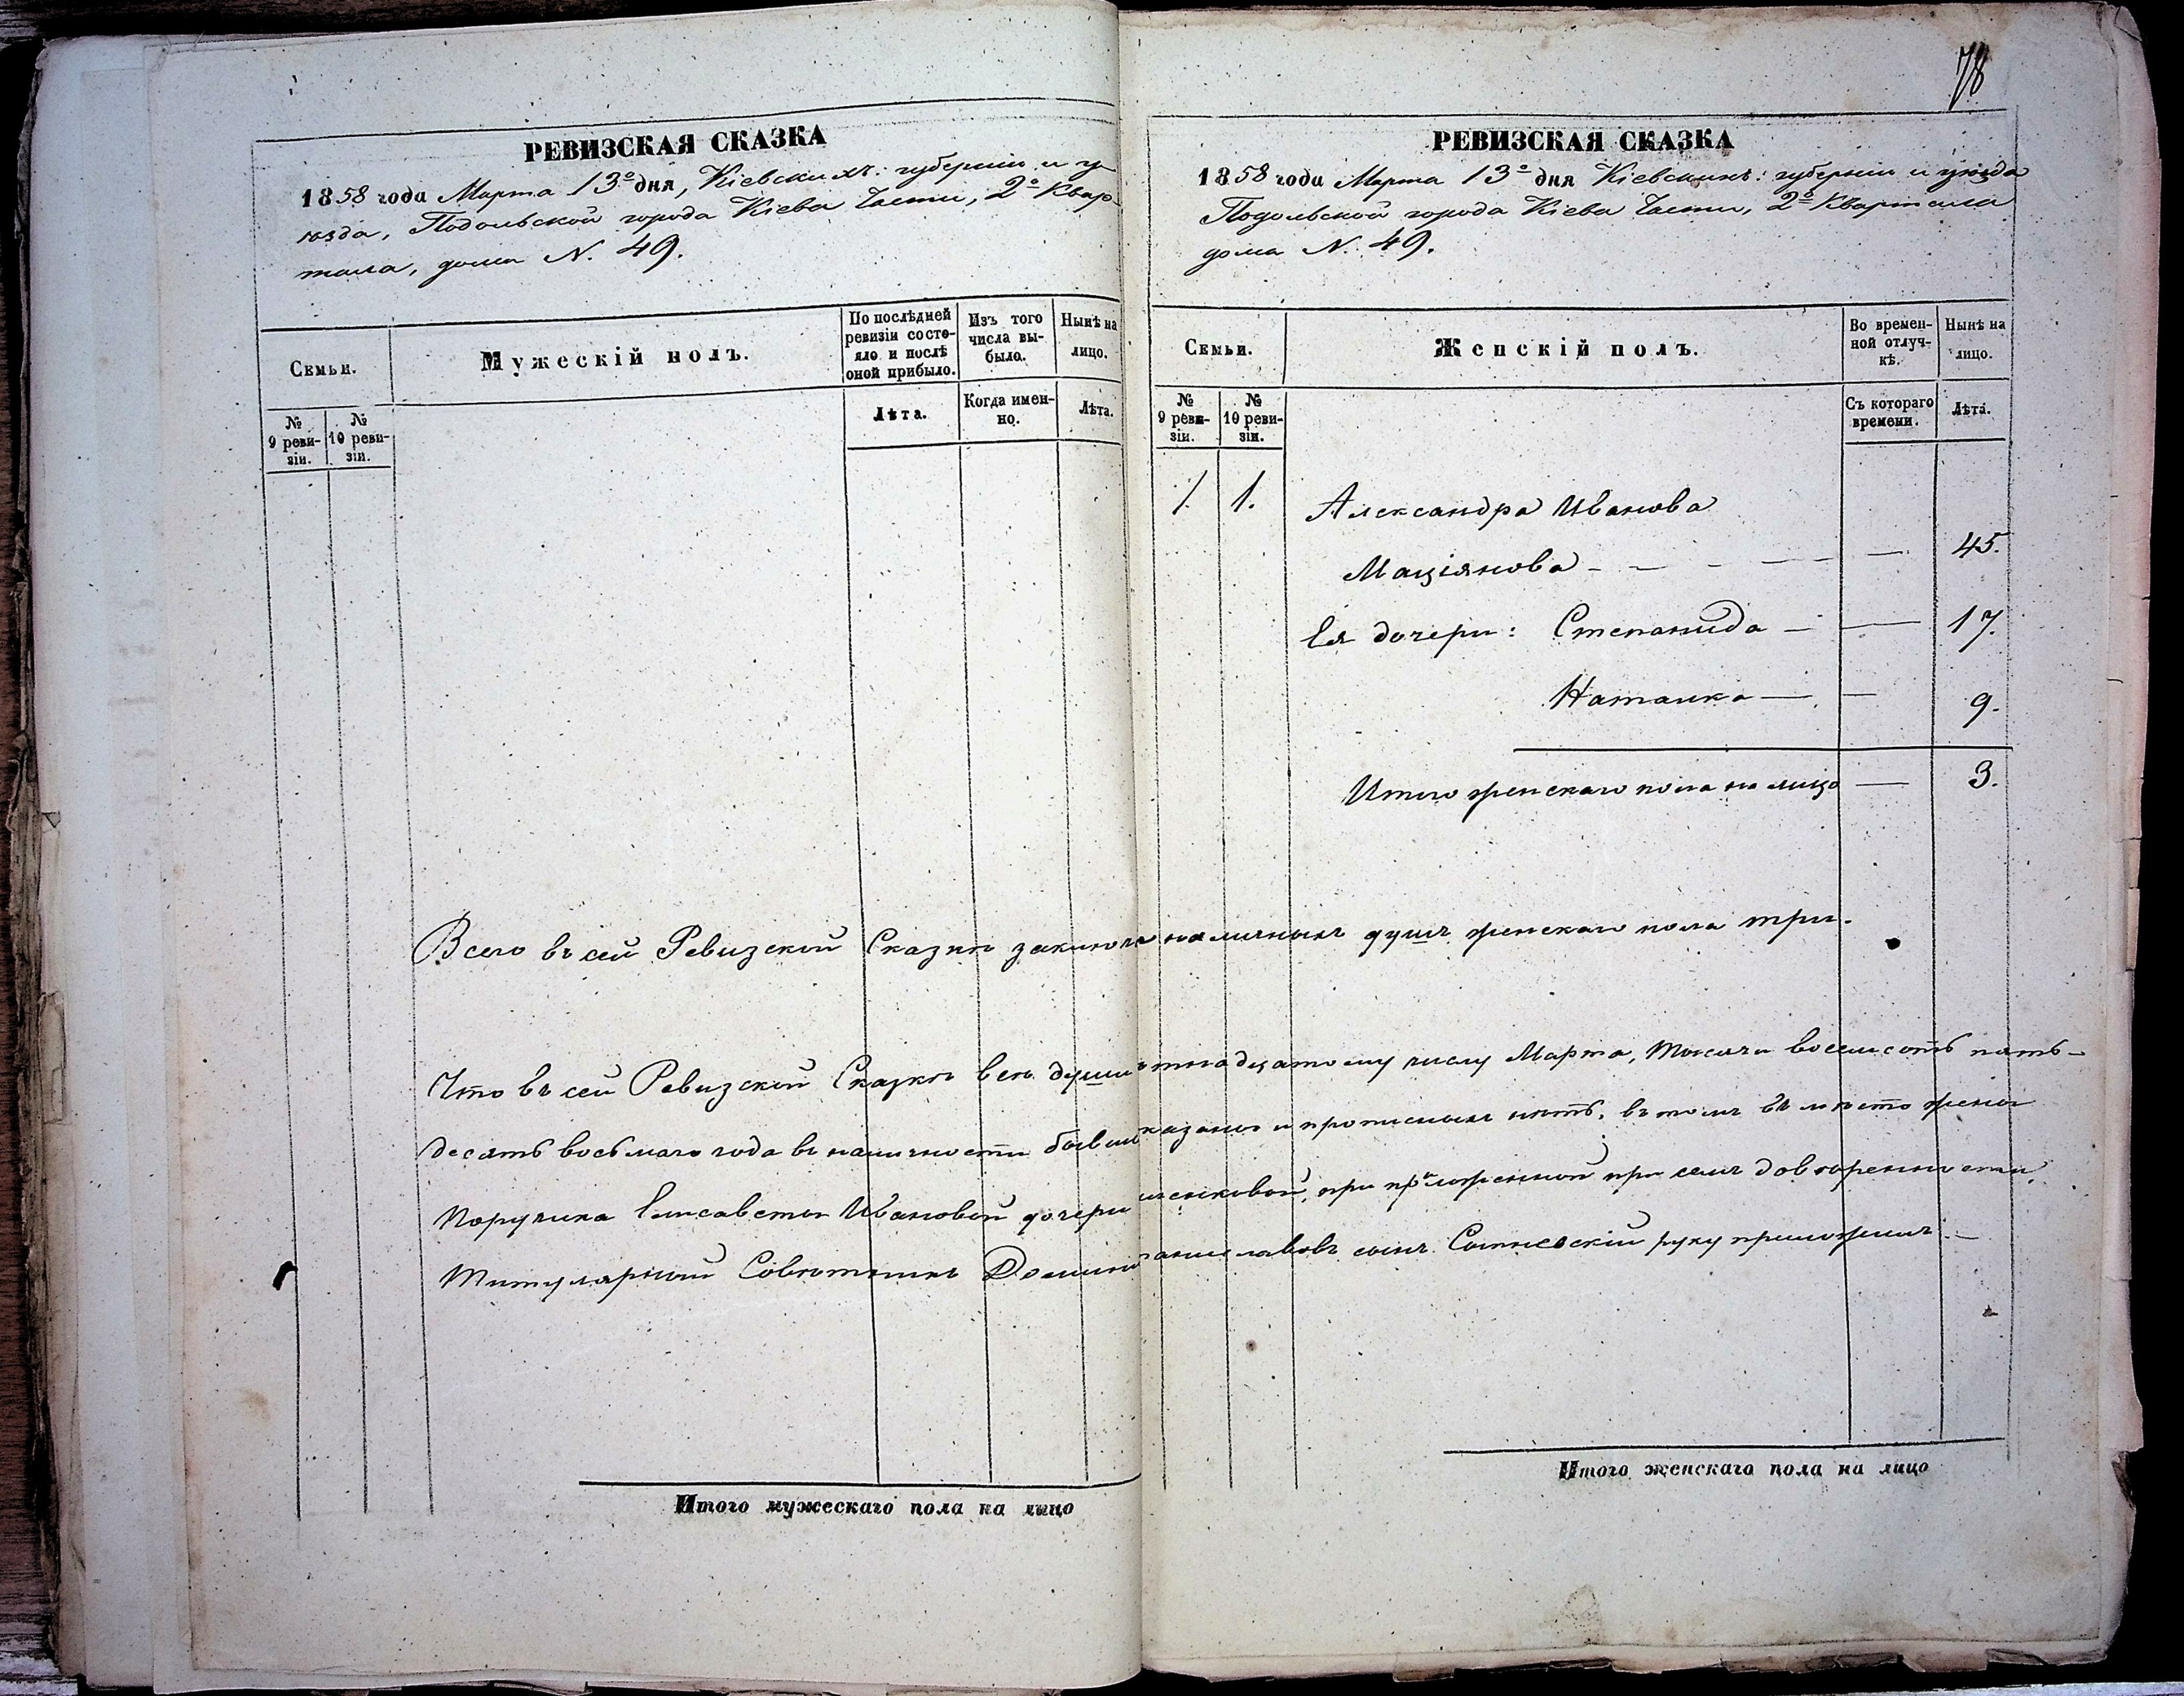 РЕВИЗСКАЯ СКАЗКА
1858 года Марта 13º дня, Кіевскихъ: губерніи и у-
ѣзда, Подольской города Кіева Части, 2º Квар-
тала, дома N. 49.
Семьи.
Мужескій полъ.
По послѣдней ревизіи состояло и послѣ оной прибыло.
Изъ того числа выбыло.
Нынѣ на лицо.
№ 9 ревизіи.
№ 10 ревизіи.
Лѣта.
Когда именно.
Лѣта.
Всего въ сей Ревизской Сказкѣ заключ
Что въ сей Ревизской Сказкѣ всѣ души
десять восьмаго года въ наличности бывш
Поручика Елисаветы Ивановой дочери
Титулярный Совѣтникъ Домини
Итого мужескаго пола на лицо
78
РЕВИЗСКАЯ СКАЗКА
1858 года Марта 13º дня Кіевскихъ: губерніи и уѣзда
Подольской города Кіева Части, 2º Квартала
дома N. 49.
Семьи.
Женскій полъ.
Во временной отлучкѣ.
Нынѣ на лицо.
№ 9 ревизіи.
№ 10 ревизіи.
Съ котораго времени.
Лѣта.
1. 1. Александра Иванова
Маціянова - - - — — 45.
Ея дочери: Степанида — — 17.
Наталка — — 9.
Итого женскаго пола на лицо — 3.
наличныхъ душъ женскаго пола три.
тнадцатому числу Марта, тысяча восемьсотъ пять-
казаны и прописныхъ нѣтъ, въ томъ въ мѣсто жены
енковой, при приложенной при семъ довѣренности,
аниславовъ сынъ руку приложилъ.—
Итого женскаго пола на лицо